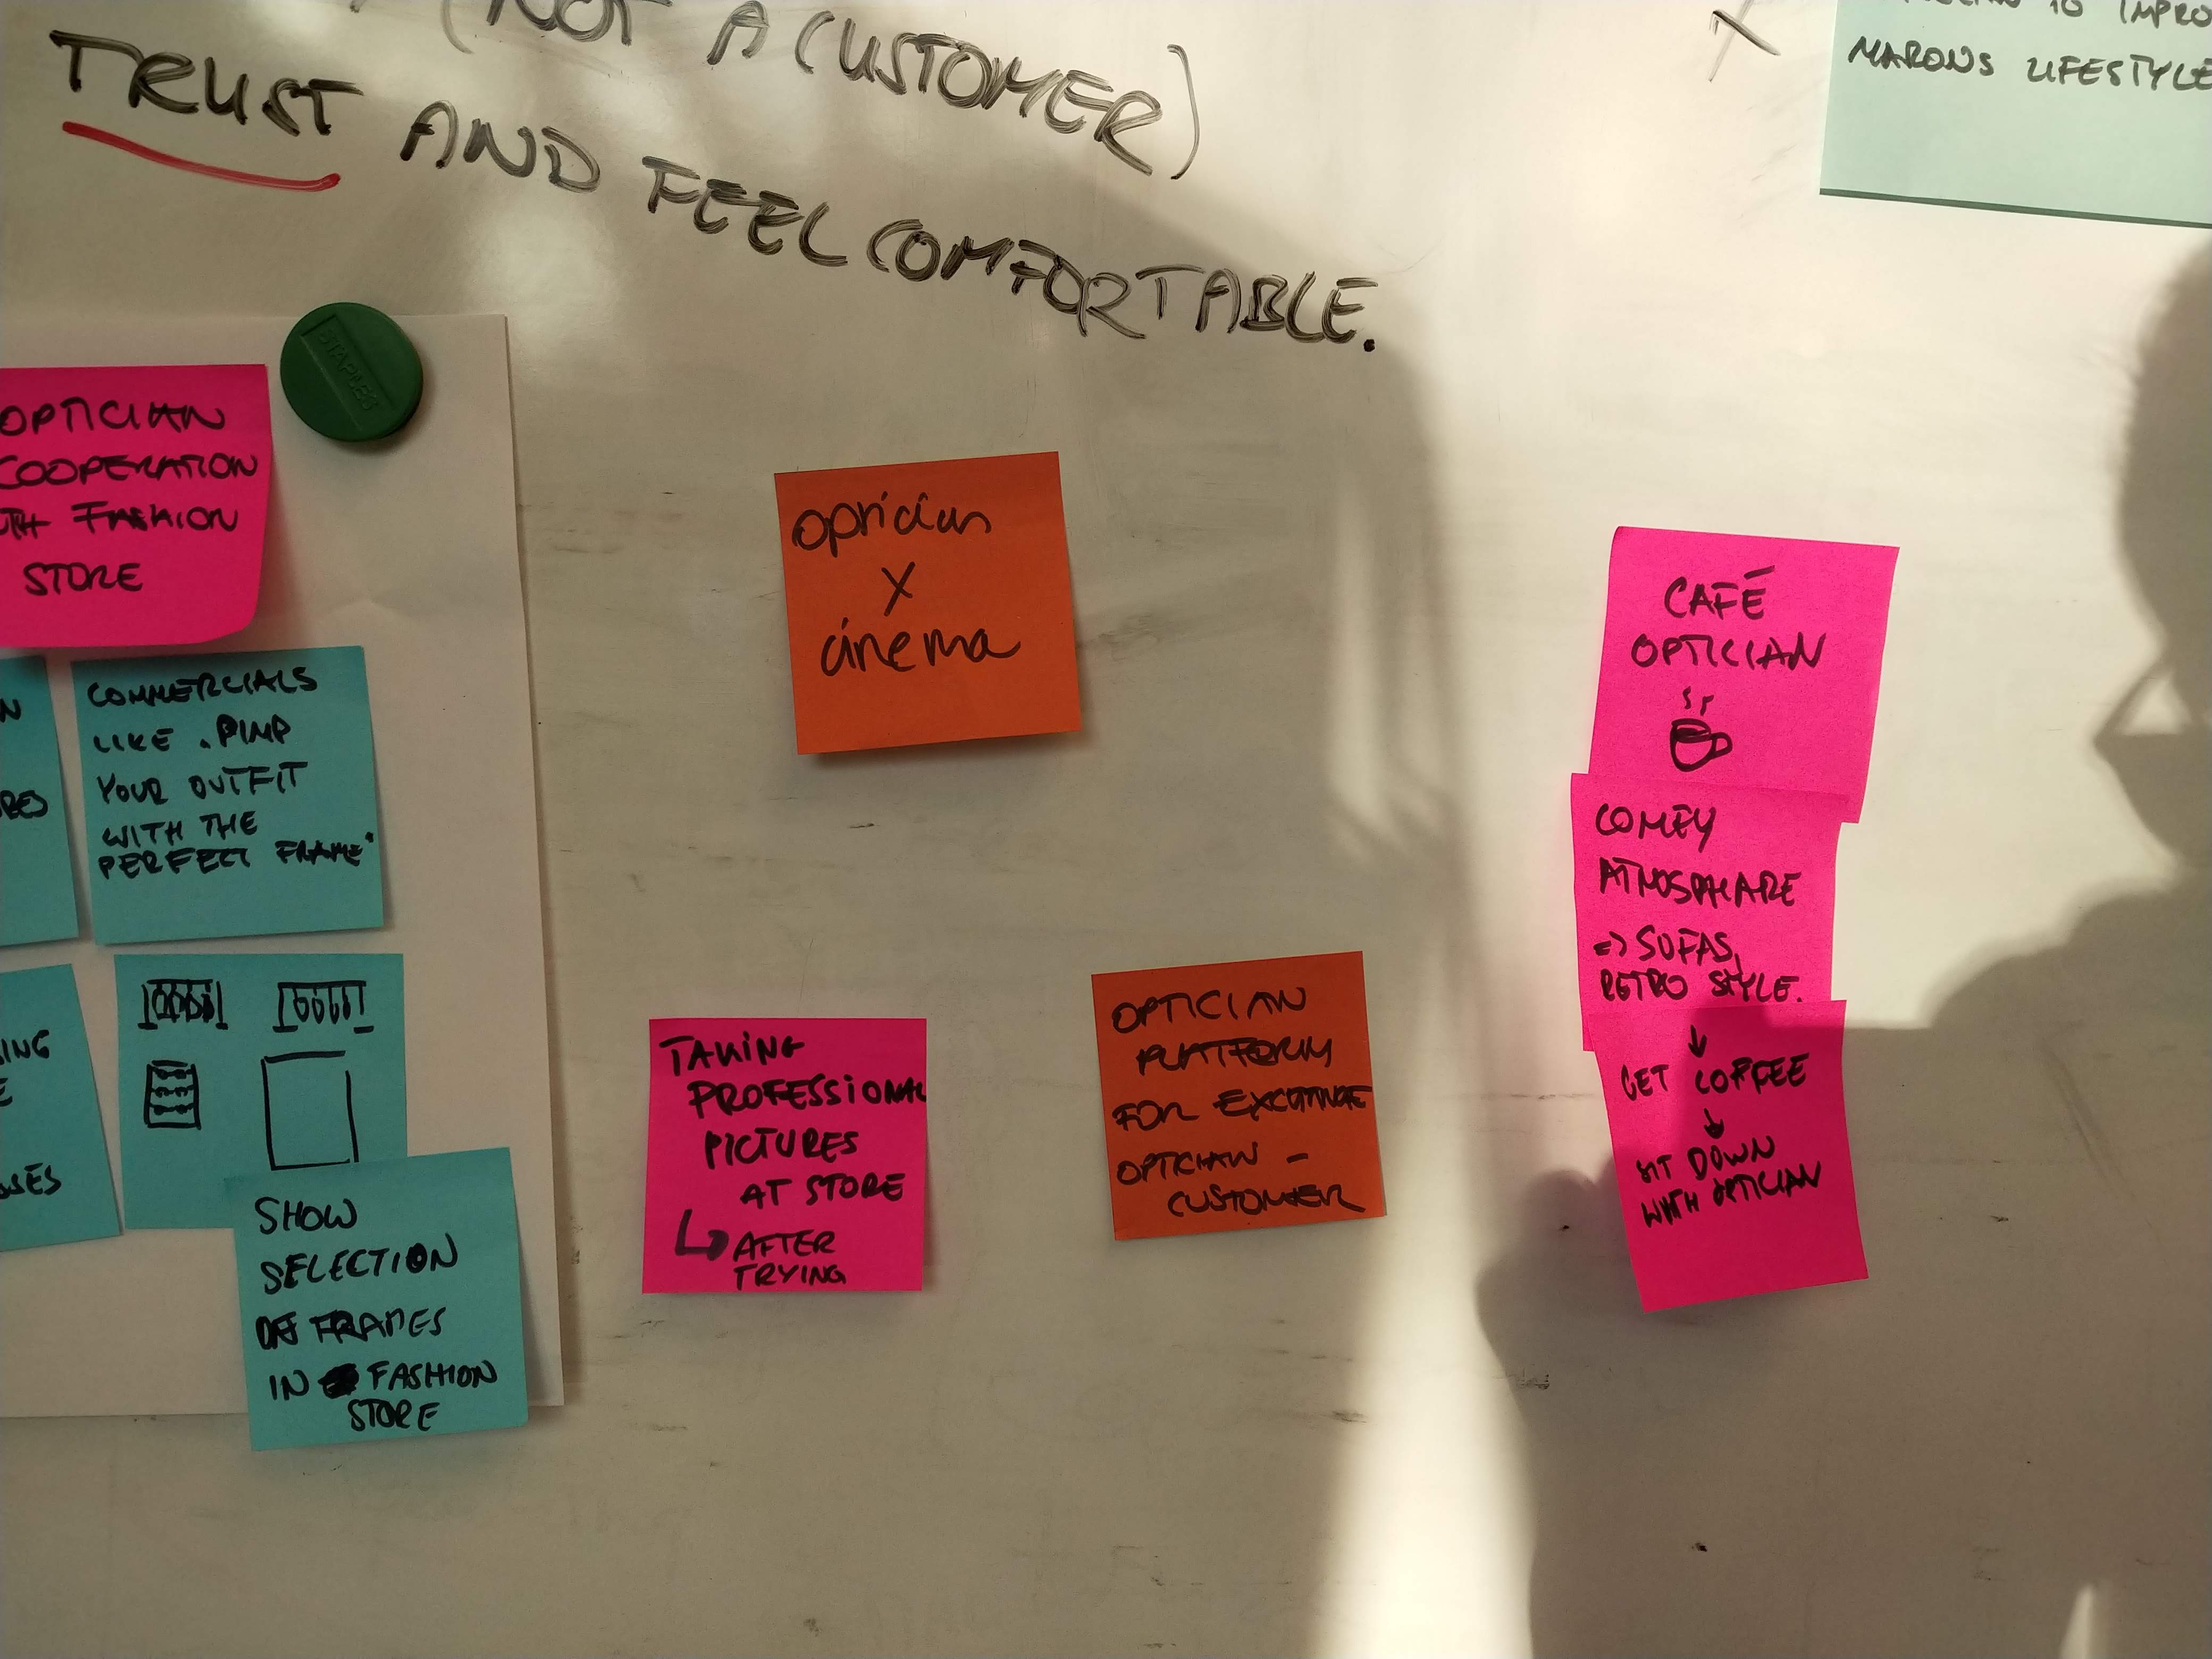 (NOT A CUSTOMER)
TRUST AND FEEL COMFORTABLE.
TO IMPRO
MARONS LIFESTYLE
STAPLES
OPTICIAN
COOPERATION
FASHION
STORE
COMMERCIALS
LIKE "PIMP
YOUR OUTFIT
WITH THE
PERFECT FRAME"
SHOW
SELECTION
OF FRAMES
IN FASHION
STORE
optician
X
cinema
TAKING
PROFESSIONAL
PICTURES
AT STORE
↳ AFTER
TRYING
OPTICIAN
PLATFORM
FOR EXCHANGE
OPTICIAN -
CUSTOMER
CAFÉ
OPTICIAN
COMFY
ATMOSPHARE
=> SOFAS,
RETRO STYLE.
↓
GET COFFEE
↓
SIT DOWN
WITH OPTICIAN